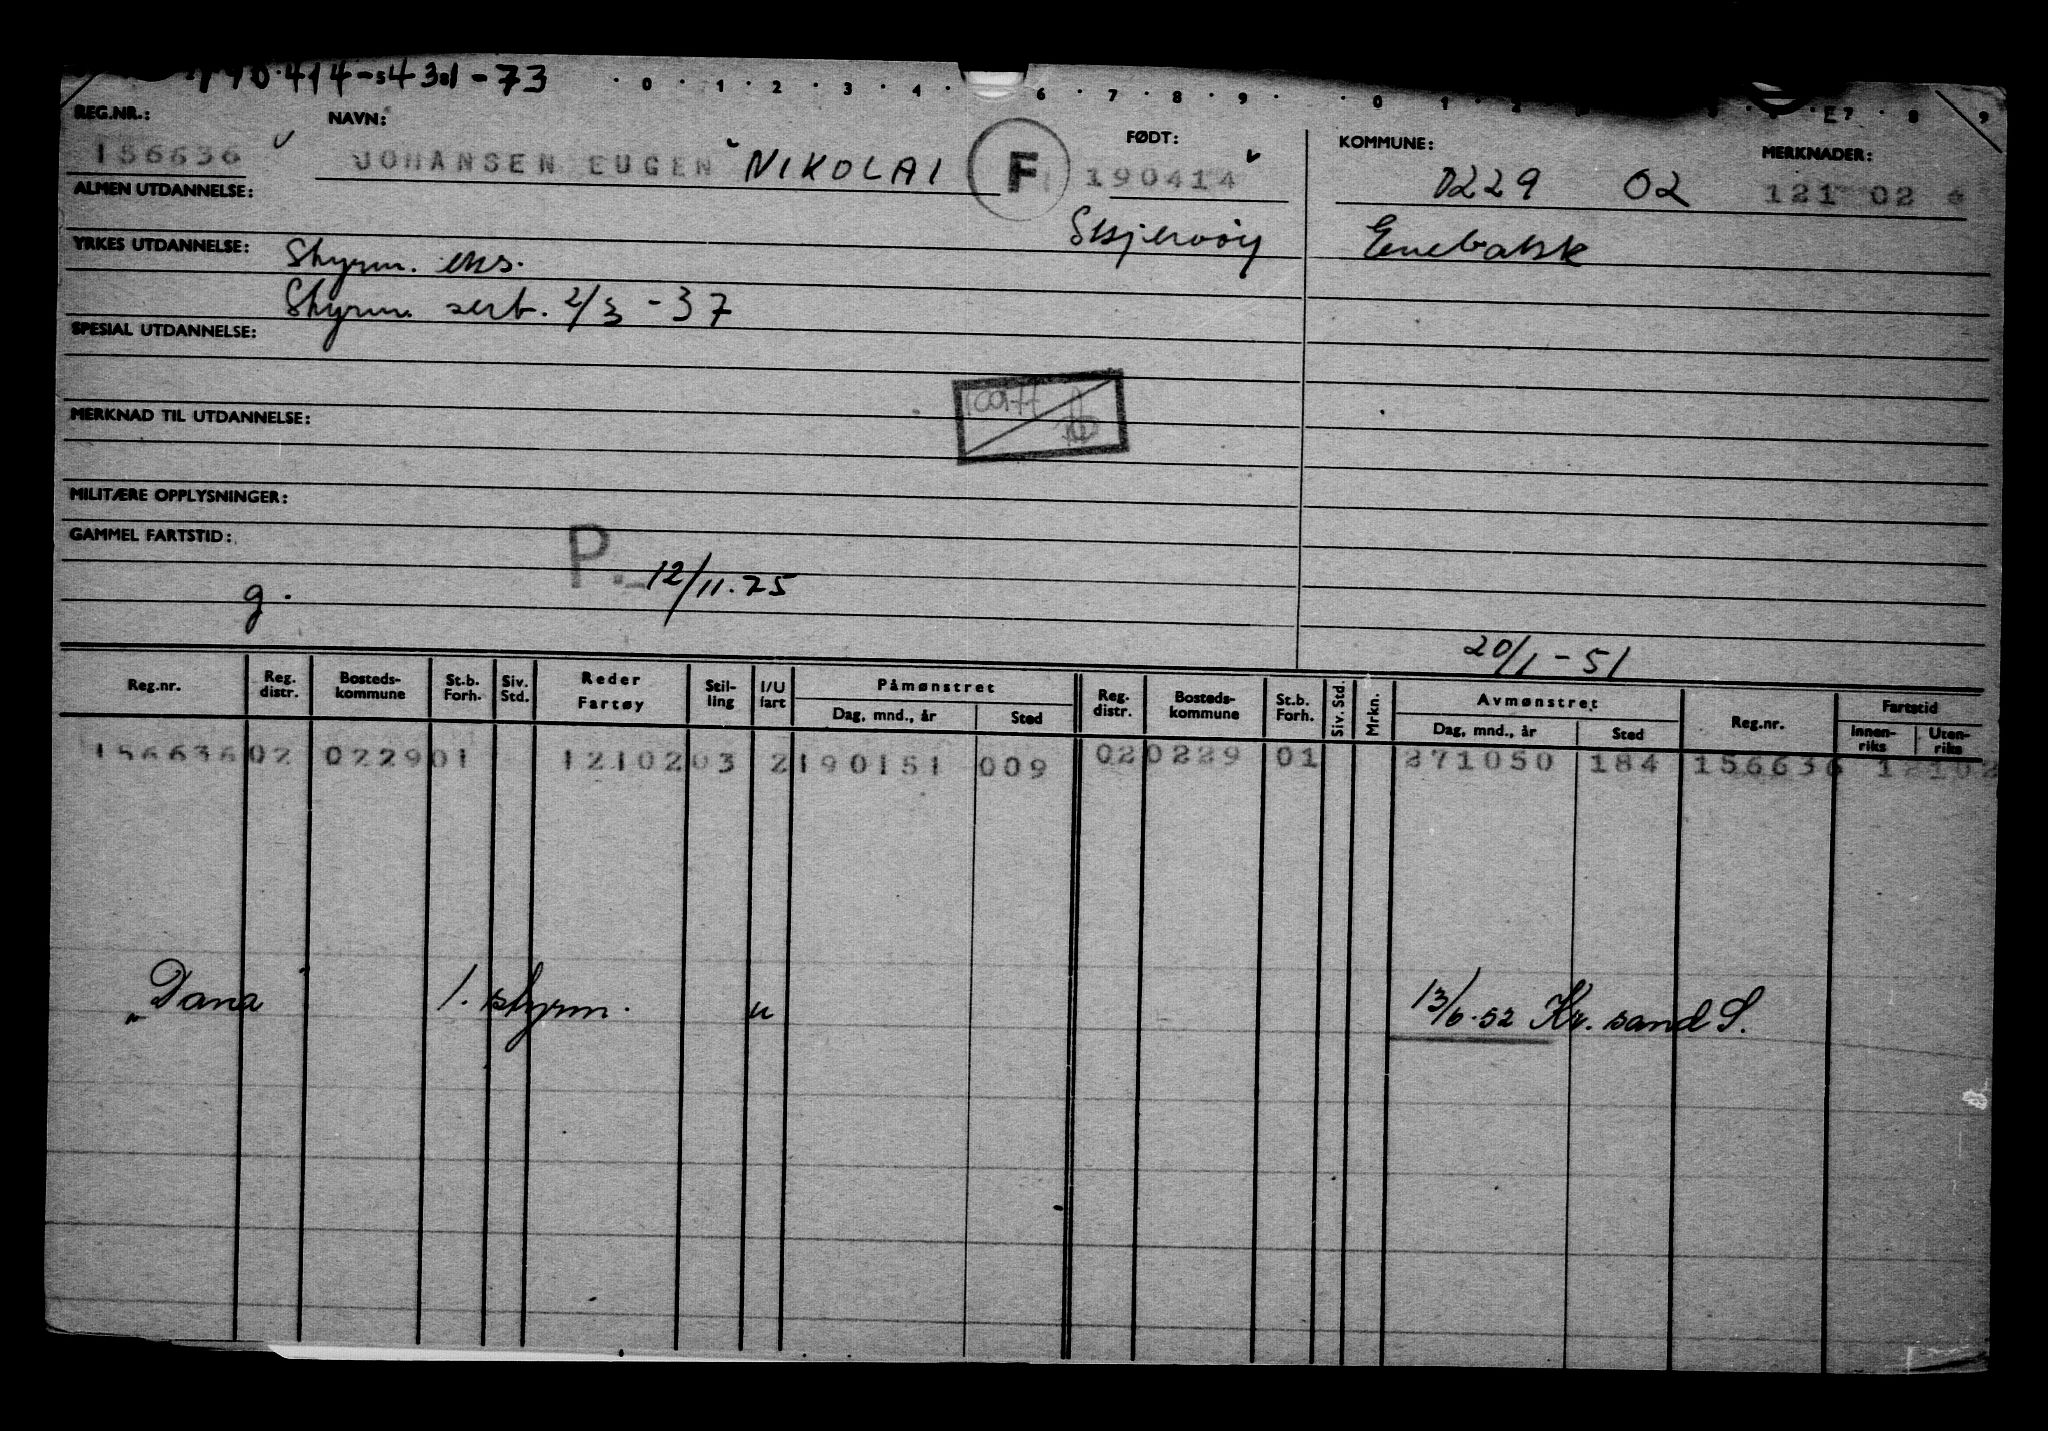 190414-43 -73
0 1 2 3 4 6 7 8 9 0 1 2 E7 8 9
REG.NR.: NAVN: FØDT: KOMMUNE: MERKNADER:
156636 JOHANSEN EUGEN NIKOLAI F 190414 0229 02 121 02
ALMEN UTDANNELSE:
Skjervøy Enebakk
YRKES UTDANNELSE: Styrm. eks.
Styrm. sert. 2/3 - 37
SPESIAL UTDANNELSE:
MERKNAD TIL UTDANNELSE:
MILITÆRE OPPLYSNINGER:
GAMMEL FARTSTID:
P. - 12/11.75
g.
20/1 - 51
Reg.nr. Reg. distr. Bosteds-kommune St.b. Forh. Siv. Std. Reder Fartøy Stil-ling I/U fart Påmønstret Dag, mnd., år Sted Reg. distr. Bosteds-kommune St.b. Forh. Siv. Std. Mrkn. Avmønstret Dag, mnd., år Sted Reg.nr. Fartstid Innen-riks Uten-riks
156636 02 0229 01 12102 03 2 190151 009 02 0229 01 271050 184 156636 12102
"Dana 1. styrm. u 13/6.52 Kr. sand S.